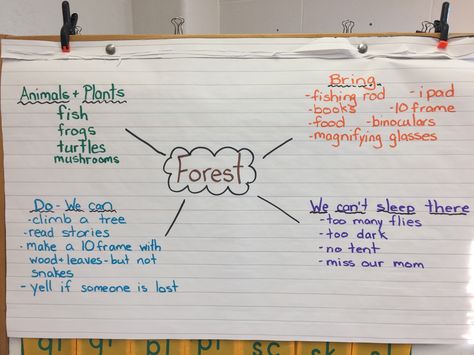 Animals + Plants
fish
frogs
turtles
mushrooms
Bring
-fishing rod -ipad
-books -10 frame
-food -binoculars
-magnifying glasses
Forest
Do - We can
-climb a tree
-read stories
-make a 10 frame with
wood+leaves-but not
snakes
-yell if someone is lost
We can't sleep there
-too many flies
-too dark
-no tent
-miss our mom
gl pl sc sk